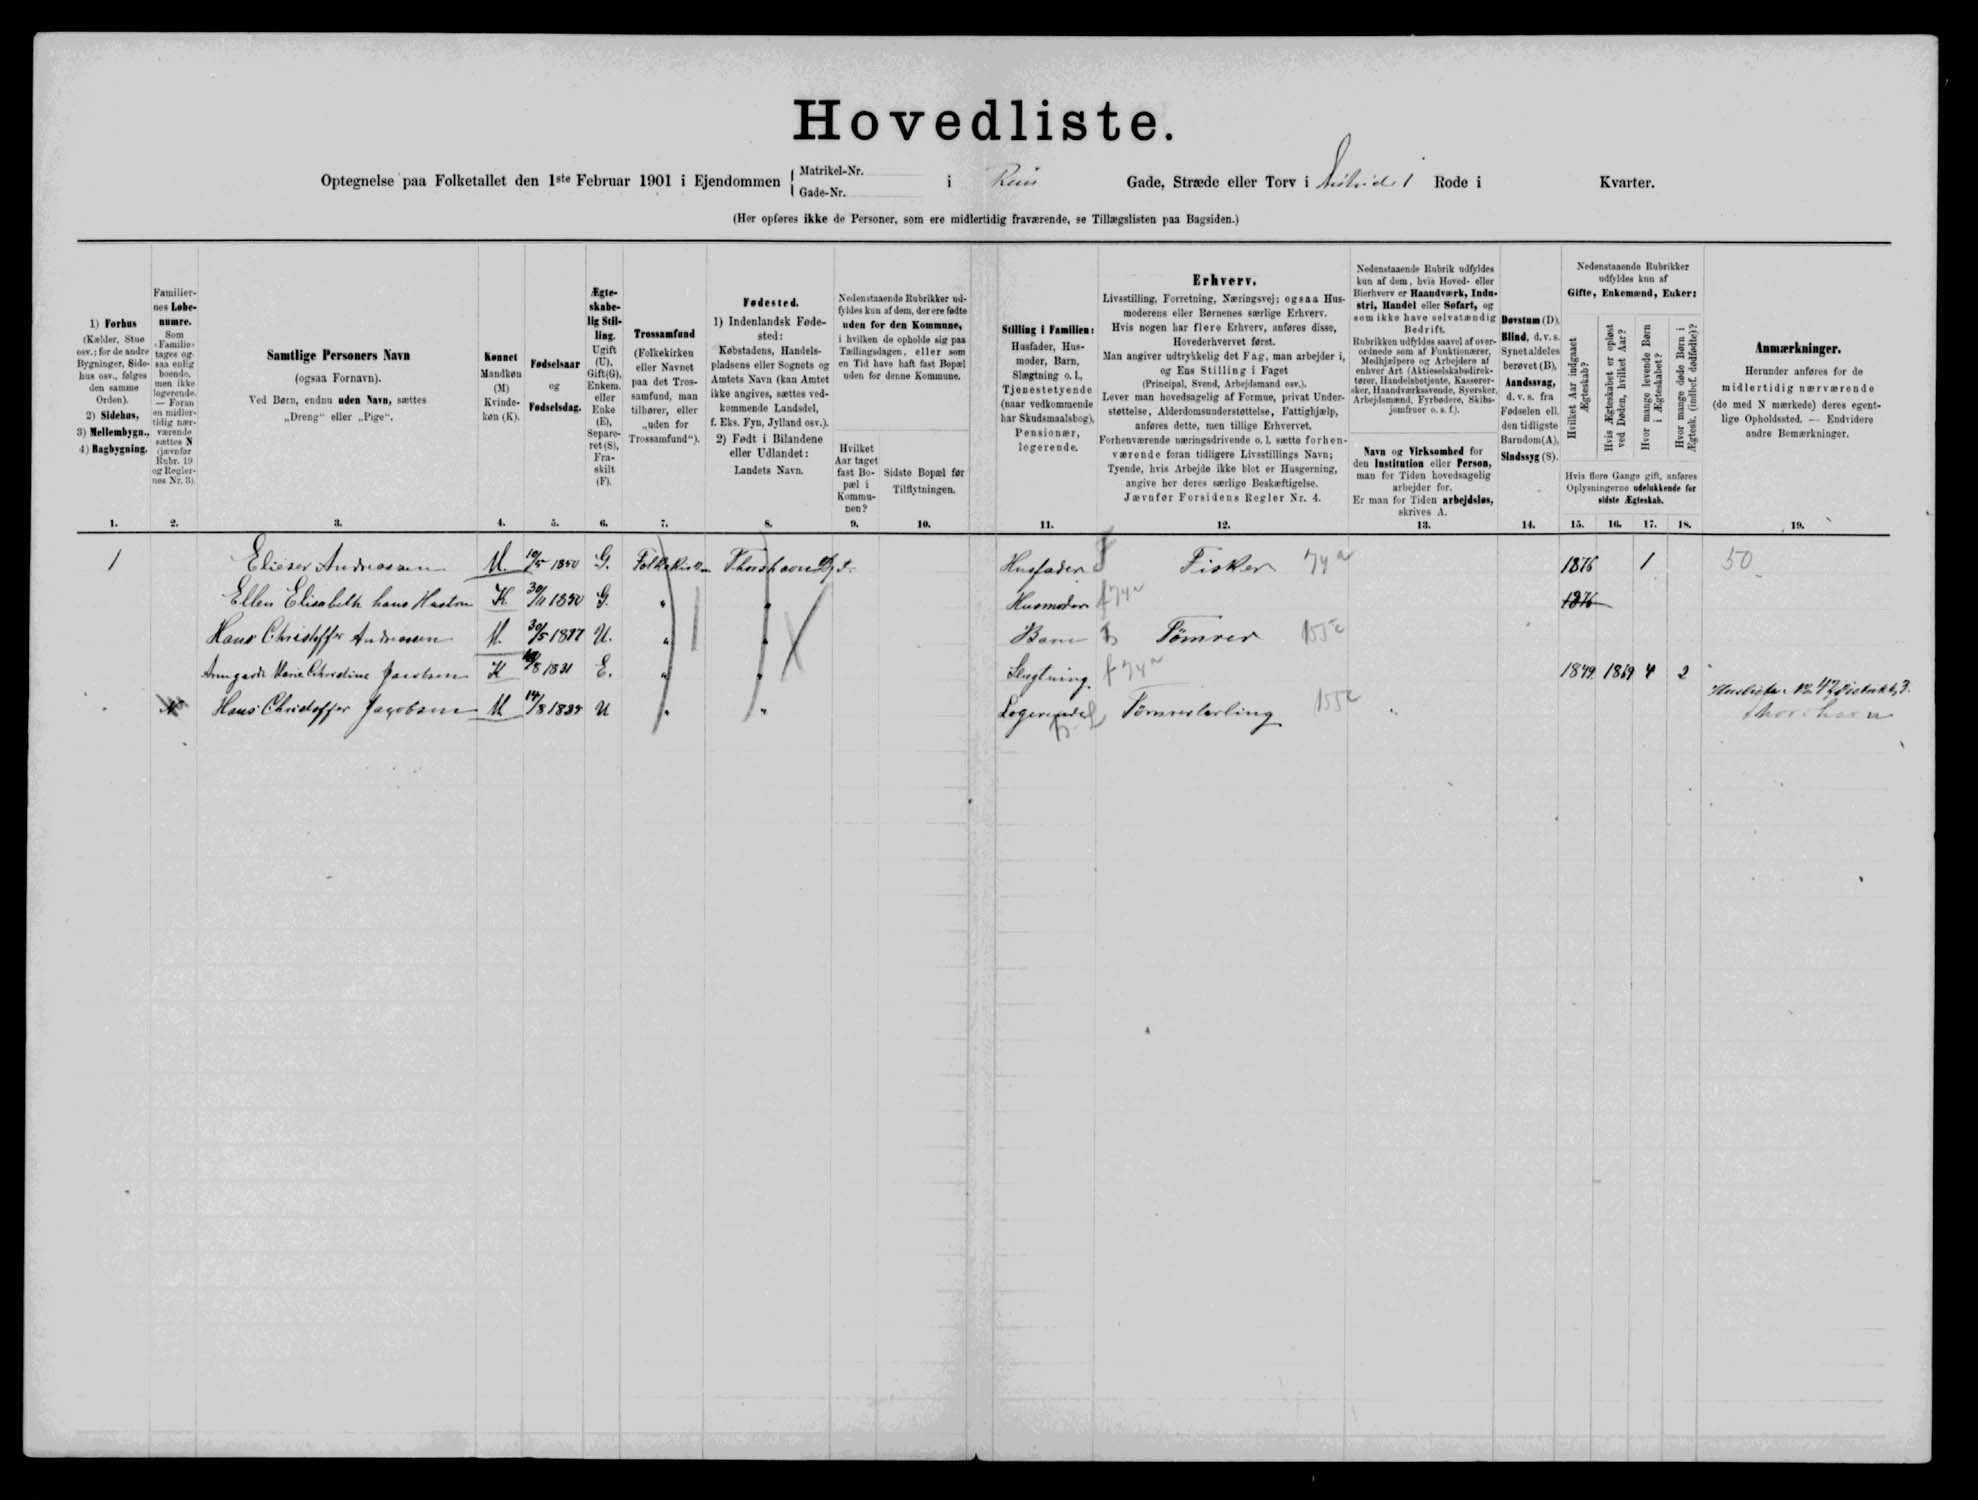 Hovedliste.
Optegnelse paa Folketallet den 1ste Februar 1901 i Ejendommen { Matrikel-Nr. Gade-Nr. i Gade, Stræde eller Torv i Rode i Kvarter.
(Her opføres ikke de Personer, som ere midlertidig fraværende, se Tillægslisten paa Bagsiden.)
1) Forhus (Kælder, Stue osv.; for de andre Bygninger, Sidehus osv., følges den samme Orden). 2) Sidehus, 3) Mellembygn., 4) Bagbygning.
Familiernes Løbenumre. Som Familie tages ogsaa enlig boende, men ikke logerende. — Foran en midlertidig nærværende sættes N (jævnfør Rubr. 19 og Regiernes Nr. 3).
Samtlige Personers Navn (ogsaa Fornavn). Ved Børn, endnu uden Navn, sættes „Dreng“ eller „Pige“.
Kønnet Mandkøn (M) Kvindekøn (K).
Fødselsaar og Fødselsdag.
Ægteskabelig Stilling. Ugift (U), Gift(G), Enkem. eller Enke (E), Separeret (S), Fraskilt (F).
Trossamfund (Folkekirken eller Navnet paa det Trossamfund, man tilhører, eller „uden for Trossamfund“).
Fødested. 1) Indenlandsk Fødested: Købstadens, Handelspladsens eller Sognets og Amtets Navn (kan Amtet ikke angives, sættes vedkommende Landsdel, f. Eks. Fyn, Jylland osv.). 2) Født i Bilandene eller Udlandet: Landets Navn.
Nedenstaaende Rubrikker udfyldes kun af dem, der ere fødte uden for den Kommune, i hvilken de opholde sig paa Tællingsdagen, eller som en Tid have haft fast Bopæl uden for denne Kommune.
Hvilket Aar taget fast Bopæl i Kommunen?
Sidste Bopæl før Tilflytningen.
Stilling i Familien: Husfader, Husmoder, Barn, Slægtning o. l., Tjenestetyende (naar vedkommende har Skudsmaalsbog), Pensionær, logerende.
Erhverv.
Livsstilling, Forretning, Næringsvej; ogsaa Husmoderens eller Børnenes særlige Erhverv.
Hvis nogen har flere Erhverv, anføres disse, Hovederhvervet først.
Man angiver udtrykkelig det Fag, man arbejder i, og Ens Stilling i Faget (Principal, Svend, Arbejdsmand osv.).
Lever man hovedsagelig af Formue, privat Understøttelse, Alderdomsunderstøttelse, Fattighjælp, anføres dette, men tillige Erhvervet.
Forhenværende næringsdrivende o. l. sætte forhenværende foran tidligere Livsstillings Navn;
Tyende, hvis Arbejde ikke blot er Husgerning, angive her deres særlige Beskæftigelse.
Jævnfør Forsidens Regler Nr. 4.
Nedenstaaende Rubrik udfyldes kun af dem, hvis Hoved- eller Bierhverv er Haandværk, Industri, Handel eller Søfart, og som ikke have selvstændig Bedrift.
Rubrikken udfyldes saavel af overordnede som af Funktionærer, Medhjælpere og Arbejdere af enhver Art (Aktieselskabsdirektører, Handelsbetjente, Kasserersker, Haandværkssvende, Syersker, Arbejdsmænd, Fyrbødere, Skibsjomfruer o. s. f.).
Navn og Virksomhed for den Institution eller Person, man for Tiden hovedsagelig arbejder for.
Er man for Tiden arbejdsløs, skrives A.
Døvstum (D), Blind, d. v. s. Synet aldeles berøvet (B), Aandssvag, d. v. s. fra Fødselen ell. den tidligste Barndom (A), Sindssyg (S).
Nedenstaaende Rubrikker udfyldes kun af Gifte, Enkemænd, Enker:
Hvilket Aar indgaaet Ægteskab?
Hvis Ægteskabet er opløst ved Døden, hvilket Aar?
Hvor mange levende Børn i Ægteskabet?
Hvor mange døde Børn i Ægtesk. (indbef. dødfødte)?
Hvis flere Gange gift, anføres Oplysningerne udelukkende for sidste Ægteskab.
Anmærkninger.
Herunder anføres for de midlertidig nærværende (de med N mærkede) deres egentlige Opholdssted. — Endvidere andre Bemærkninger.
1. 2. 3. 4. 5. 6. 7. 8. 9. 10. 11. 12. 13. 14. 15. 16. 17. 18. 19.
1 Elieser Andreassen M. 10/5 1850 G. Folkekirken Thorshavn Husfader Fisker 74a 1876 1 50
Ellen Elisabeth hans Hustru K 30/11 1850 G. " " Husmoder f 74a 1876
Hans Christoffer Andreasen M. 30/5 1877 U. " " Barn Tömrer 155c
Marie Christine Jacobsen K /8 1831 E. " " Slægtning f 74a 1849 1869 4 2
N Hans Christoffer Jacobsen M 14/8 1884 U " " Logerende Tömrerlærling 155c " 47 Distrikt 3.
Thorshavn